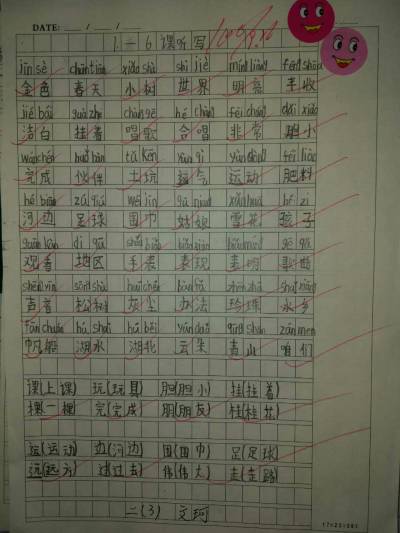 DATE: / /
1-6课听写
jīn sè chūn tiān xiǎo shù shì jiè míng liàng fēng shōu
金色 春天 小树 世界 明亮 丰收
jié bái guà zhe chàng gē hé chàng fēi cháng dǎn xiǎo
洁白 挂着 唱歌 合唱 非常 胆小
wán chéng huǒ bàn yùn dòng féi liào
完成 伙伴 土坑 运气 运动 肥料
hé biān zú qiú wéi jīn gū niang xuě huā hái zi
河边 足球 围巾 姑娘 雪花 孩子
guān kàn dì qū gē qǔ
观看 地区 手表 表现 表明 歌曲
shēng yīn sōng shù huī chén bàn fǎ zhēn zhū shuǐ xiāng
声音 松树 灰尘 办法 珍珠 水乡
fān chuán hú shuǐ hú běi yún duǒ qīng shān zán men
帆船 湖水 湖北 云朵 青山 咱们
课(上课) 玩(玩具) 胆(胆小) 挂(挂着)
棵(一棵) 完(完成) 朋(朋友) 桂(桂花)
运(运动) 边(河边) 围(围巾) 足(足球)
远(远方) 过(过去) 伟(伟大) 走(走路)
二(3) 文珂